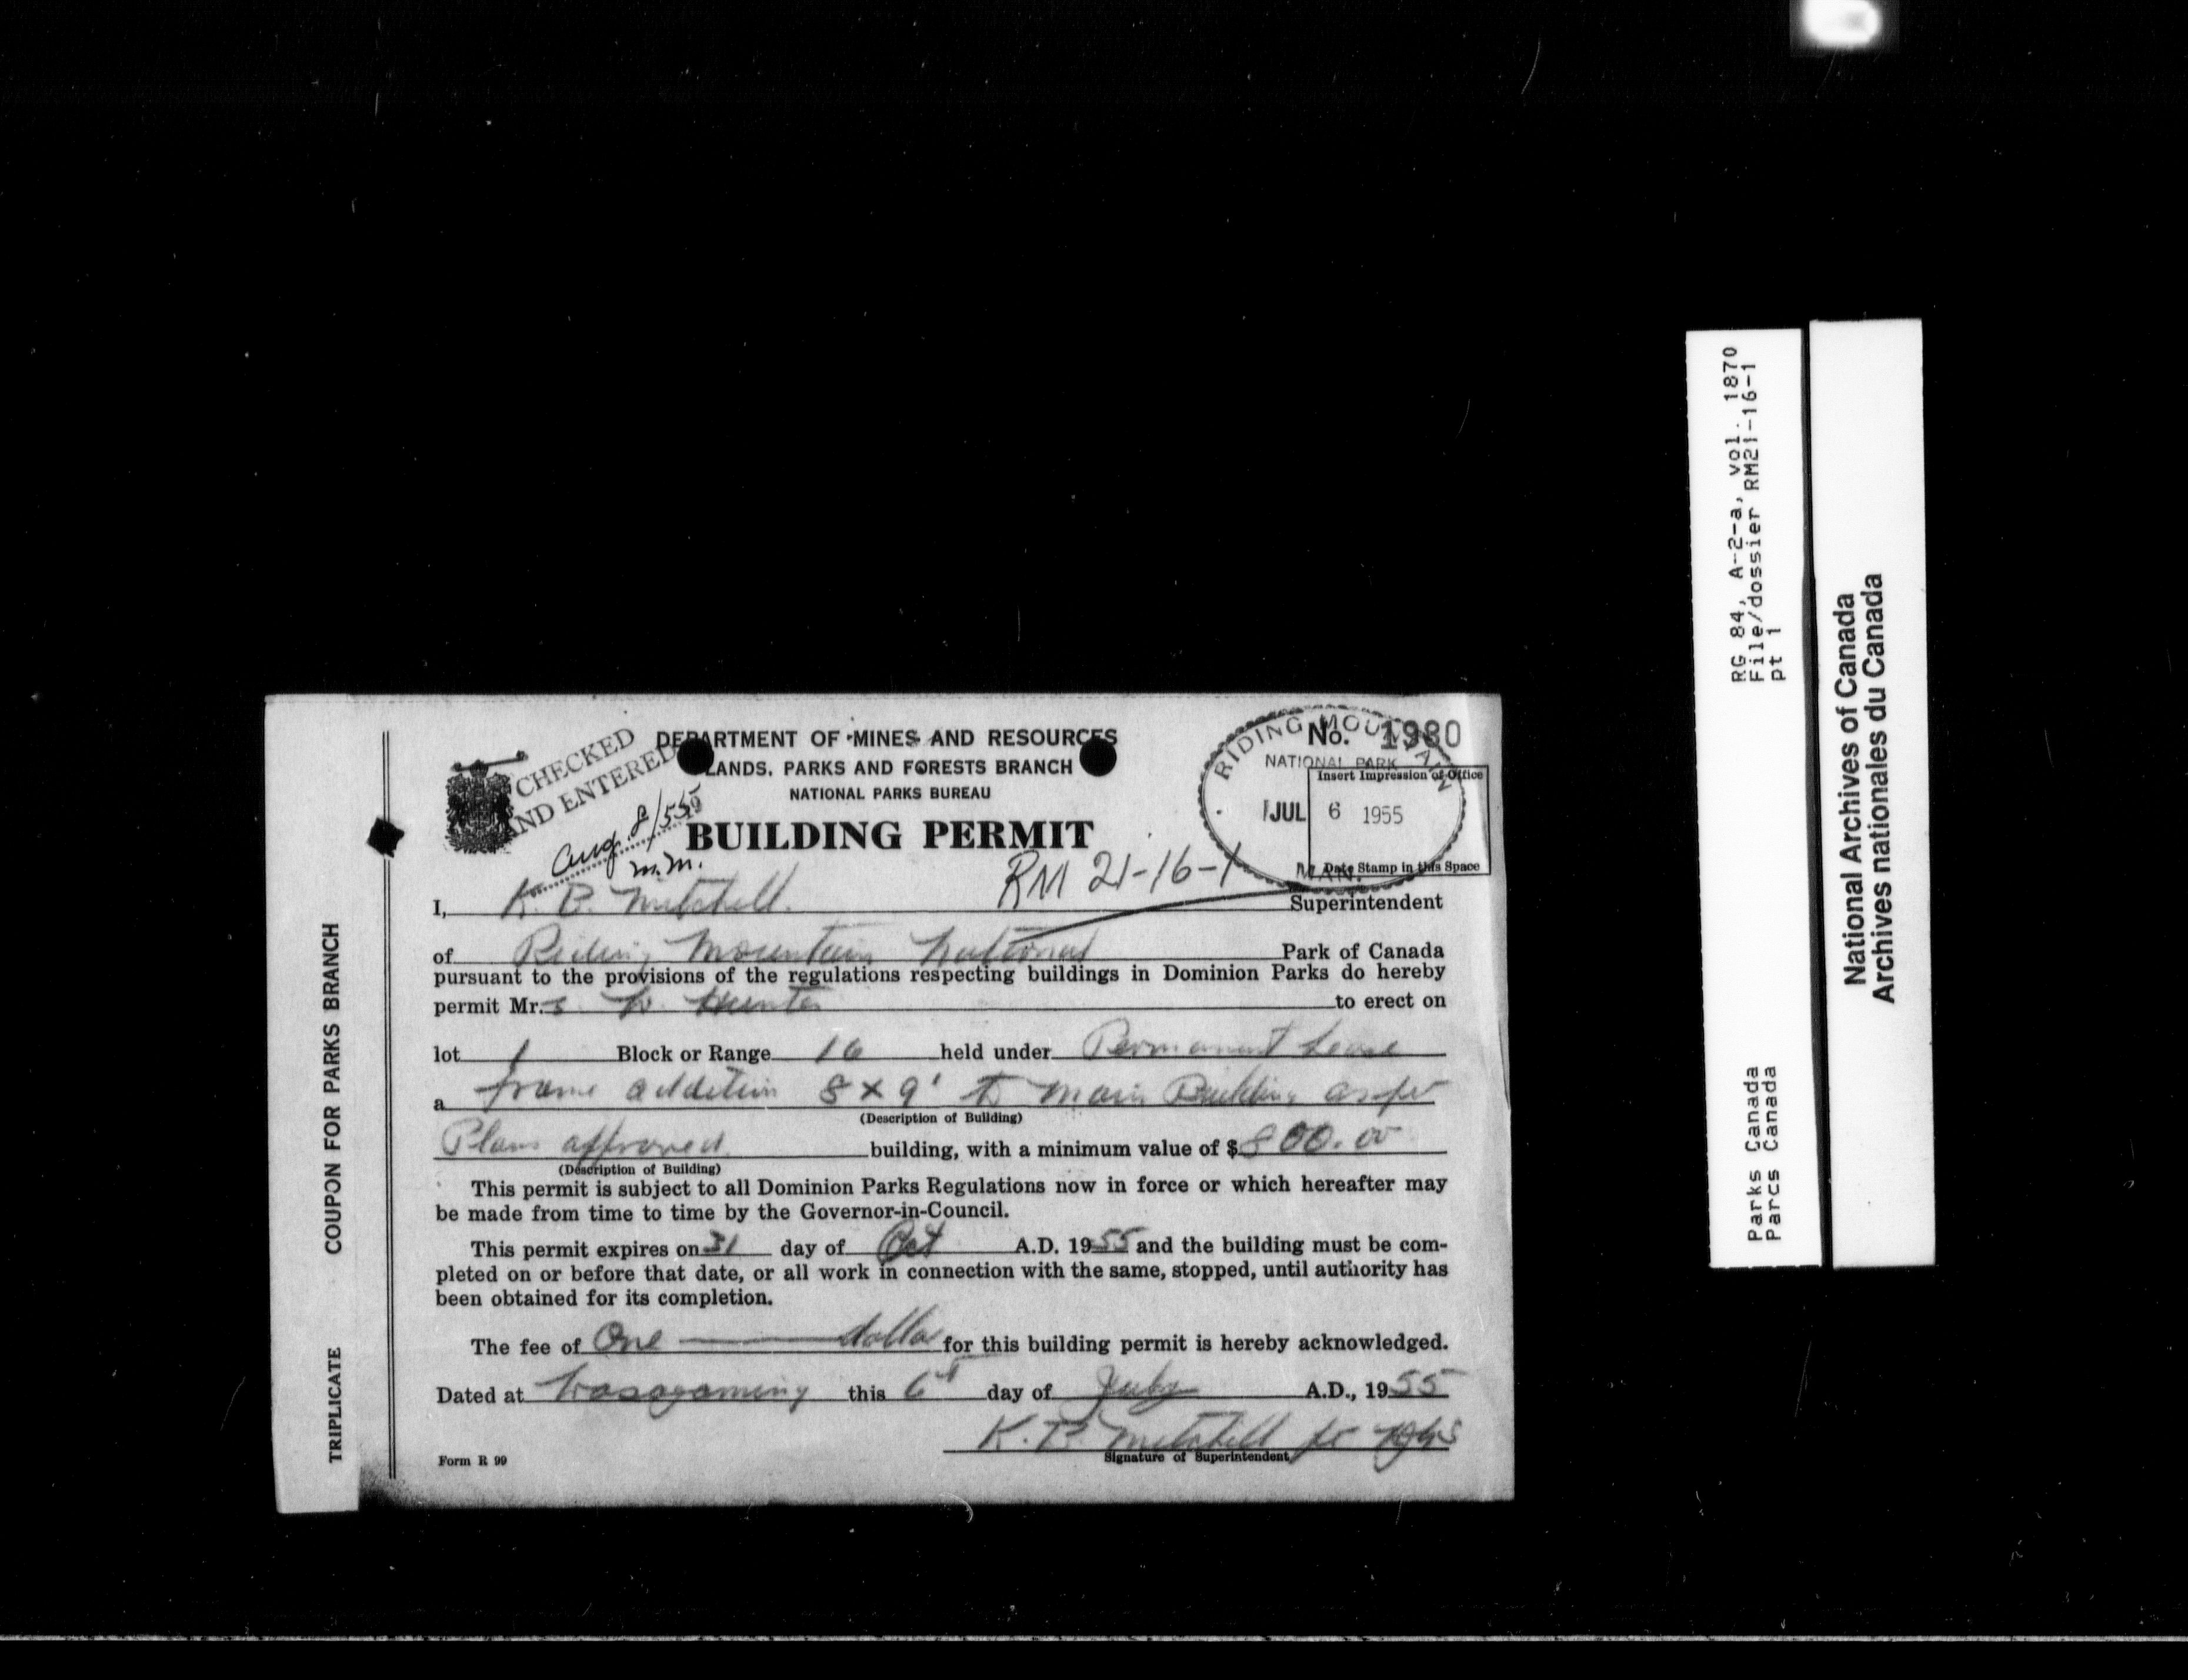 DEPARTMENT OF MINES AND RESOURCES
LANDS, PARKS AND FORESTS BRANCH
NATIONAL PARKS BUREAU
BUILDING PERMIT
CHECKED
AND ENTERED
Aug. 8/55
m.m.
No. 1980
RIDING MOUNTAIN
NATIONAL PARK
Insert Impression of Office
JUL 6 1955
MAN.
Date Stamp in this Space
RM 21-16-1
I, K. B. Mitchell. Superintendent
of Riding Mountain National Park of Canada
pursuant to the provisions of the regulations respecting buildings in Dominion Parks do hereby
permit Mr.s Hunter to erect on
lot 1 Block or Range 16 held under Permanent Lease
a frame addition 8 x 9' to main Building as per
(Description of Building)
Plans approved building, with a minimum value of $ 800.00
(Description of Building)
This permit is subject to all Dominion Parks Regulations now in force or which hereafter may
be made from time to time by the Governor-in-Council.
This permit expires on 31 day of Oct A.D. 1955 and the building must be com-
pleted on or before that date, or all work in connection with the same, stopped, until authority has
been obtained for its completion.
The fee of One dollar for this building permit is hereby acknowledged.
Dated at Wasagaming this 6th day of July A.D., 1955
K. B. Mitchell
Signature of Superintendent
Form R 99
TRIPLICATE COUPON FOR PARKS BRANCH
RG 84, A-2-a, vol. 1870
File/dossier RM21-16-1
pt 1
Parks Canada
Parcs Canada
National Archives of Canada
Archives nationales du Canada